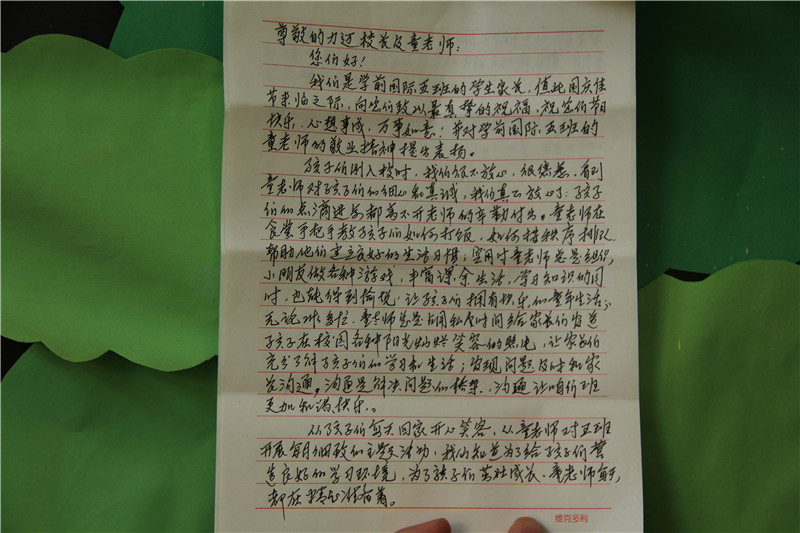 尊敬的力迈校长及童老师：
您们好！
我们是学前国际五班的学生家长，值此国庆佳
节来临之际，向您们致以最真挚的祝福，祝您们节日
快乐，心想事成，万事如意！并对学前国际五班的
童老师的敬业精神提出表扬。
孩子们刚入校时，我们很不放心，很焦虑，看到
童老师对孩子们的细心和真诚，我们真正放心了：孩子
们的点滴进步都离不开老师的辛勤付出。童老师在
食堂手把手教孩子们如何打饭，如何按秩序排队
帮助他们建立良好的生活习惯；空闲时童老师总是组织
小朋友做各种游戏，丰富课余生活，学习知识的同
时，也能得到愉悦，让孩子们拥有快乐的童年生活；
无论多忙，童老师总是占用私人时间给家长们发送
孩子在校园各种阳光灿烂笑容的照片，让家长们
充分了解孩子们的学习和生活；发现问题及时和家
长沟通，沟通是解决问题的桥梁，沟通让咱们班
更加和谐、快乐。
从孩子们每天回家开心笑容，从童老师对五班
开展每月细致的主题活动，我们知道为了给孩子们营
造良好的学习环境，为了孩子们茁壮成长，童老师每天
都在精心保育着。
维克多利